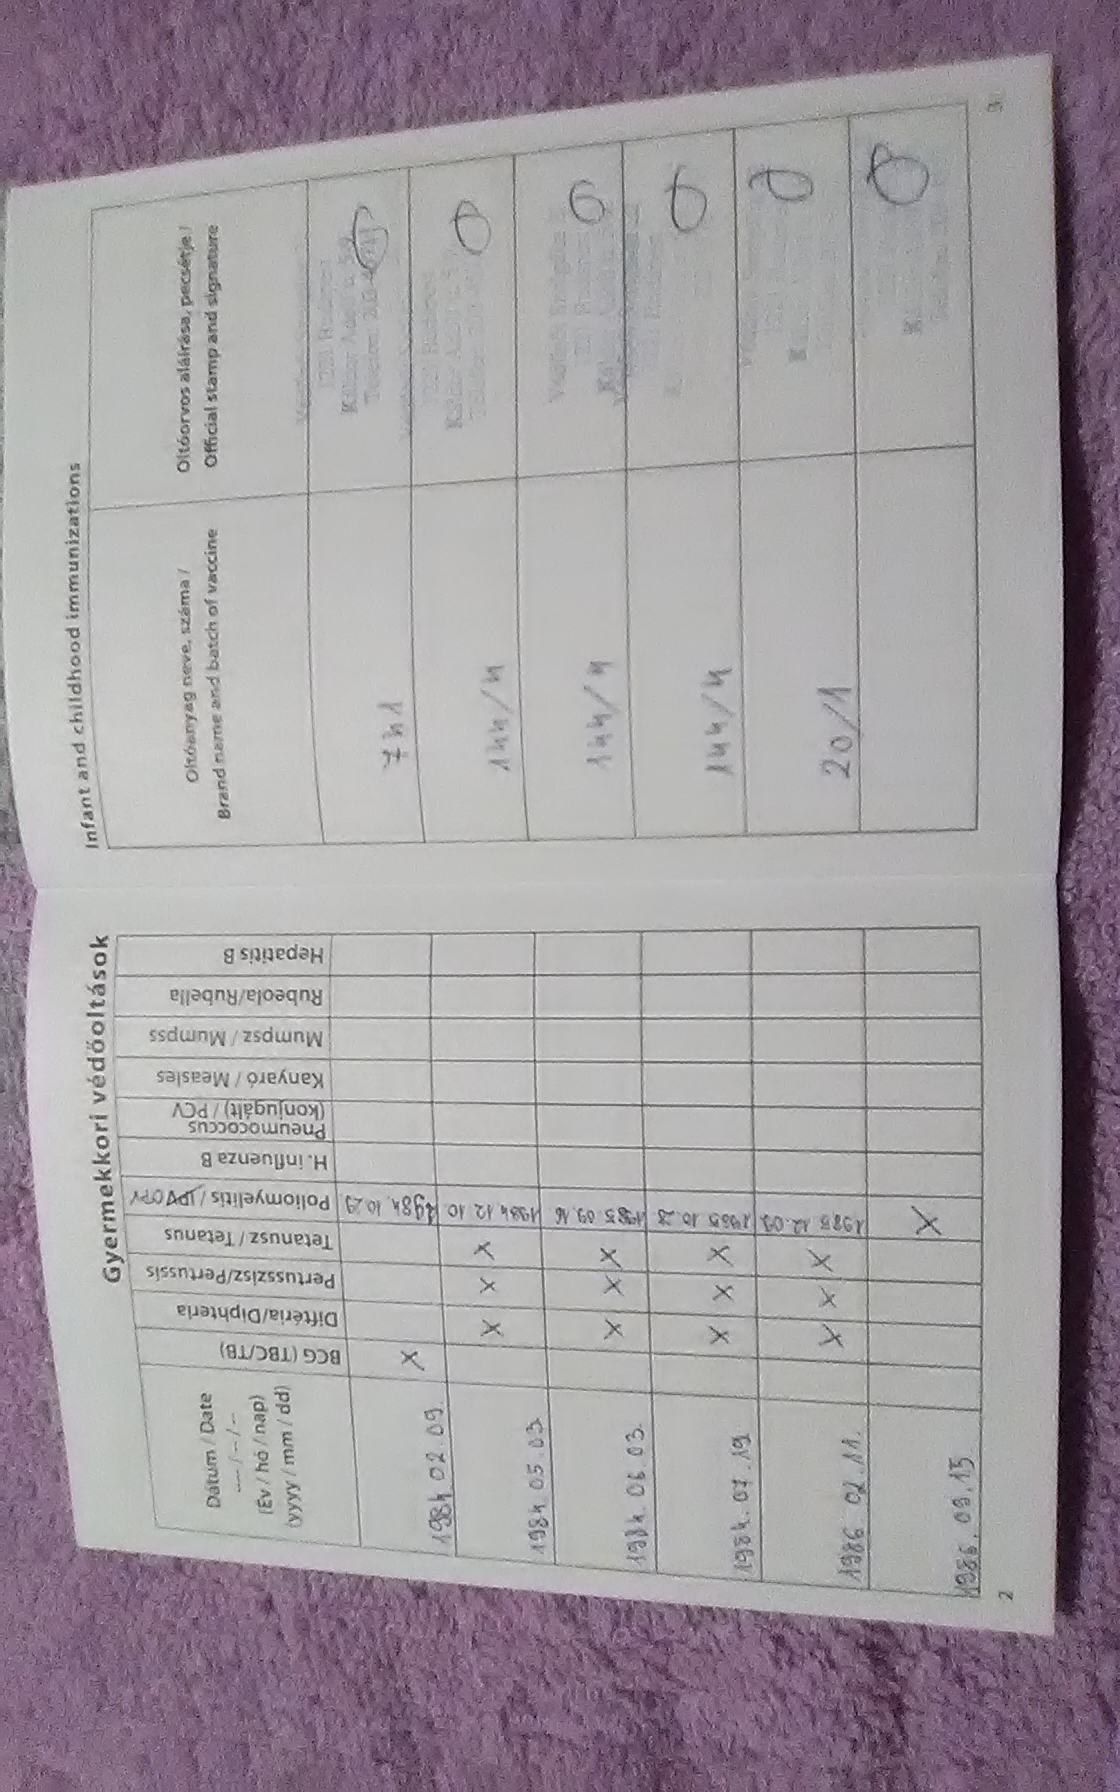 Gyermekkori védőoltások
Dátum / Date
---- / -- / --
(Év / hó / nap)
(yyyy / mm / dd)
BCG (TBC/TB)
Diftéria/Diphteria
Pertusszisz/Pertussis
Tetanusz / Tetanus
Poliomyelitis / IPV OPV
H. influenza B
Pneumococcus
(konjugált) / PCV
Kanyaró / Measles
Mumpsz / Mumpss
Rubeola/Rubella
Hepatitis B
1984 02.09. X 1984. 10.29.
1984 05.03 X X X 1984 12. 10
1984. 06. 03. X X X 1985. 09. 16
1984. 07. 19 X X X 1985 10. 28
1986 02. 11. X X X 1985 12. 09.
1986. 09. 15 X
2
Infant and childhood immunizations
Oltóanyag neve, száma /
Brand name and batch of vaccine
Oltóorvos aláírása, pecsétje /
Official stamp and signature
741
144/4
144/4
144/4
20/1
3